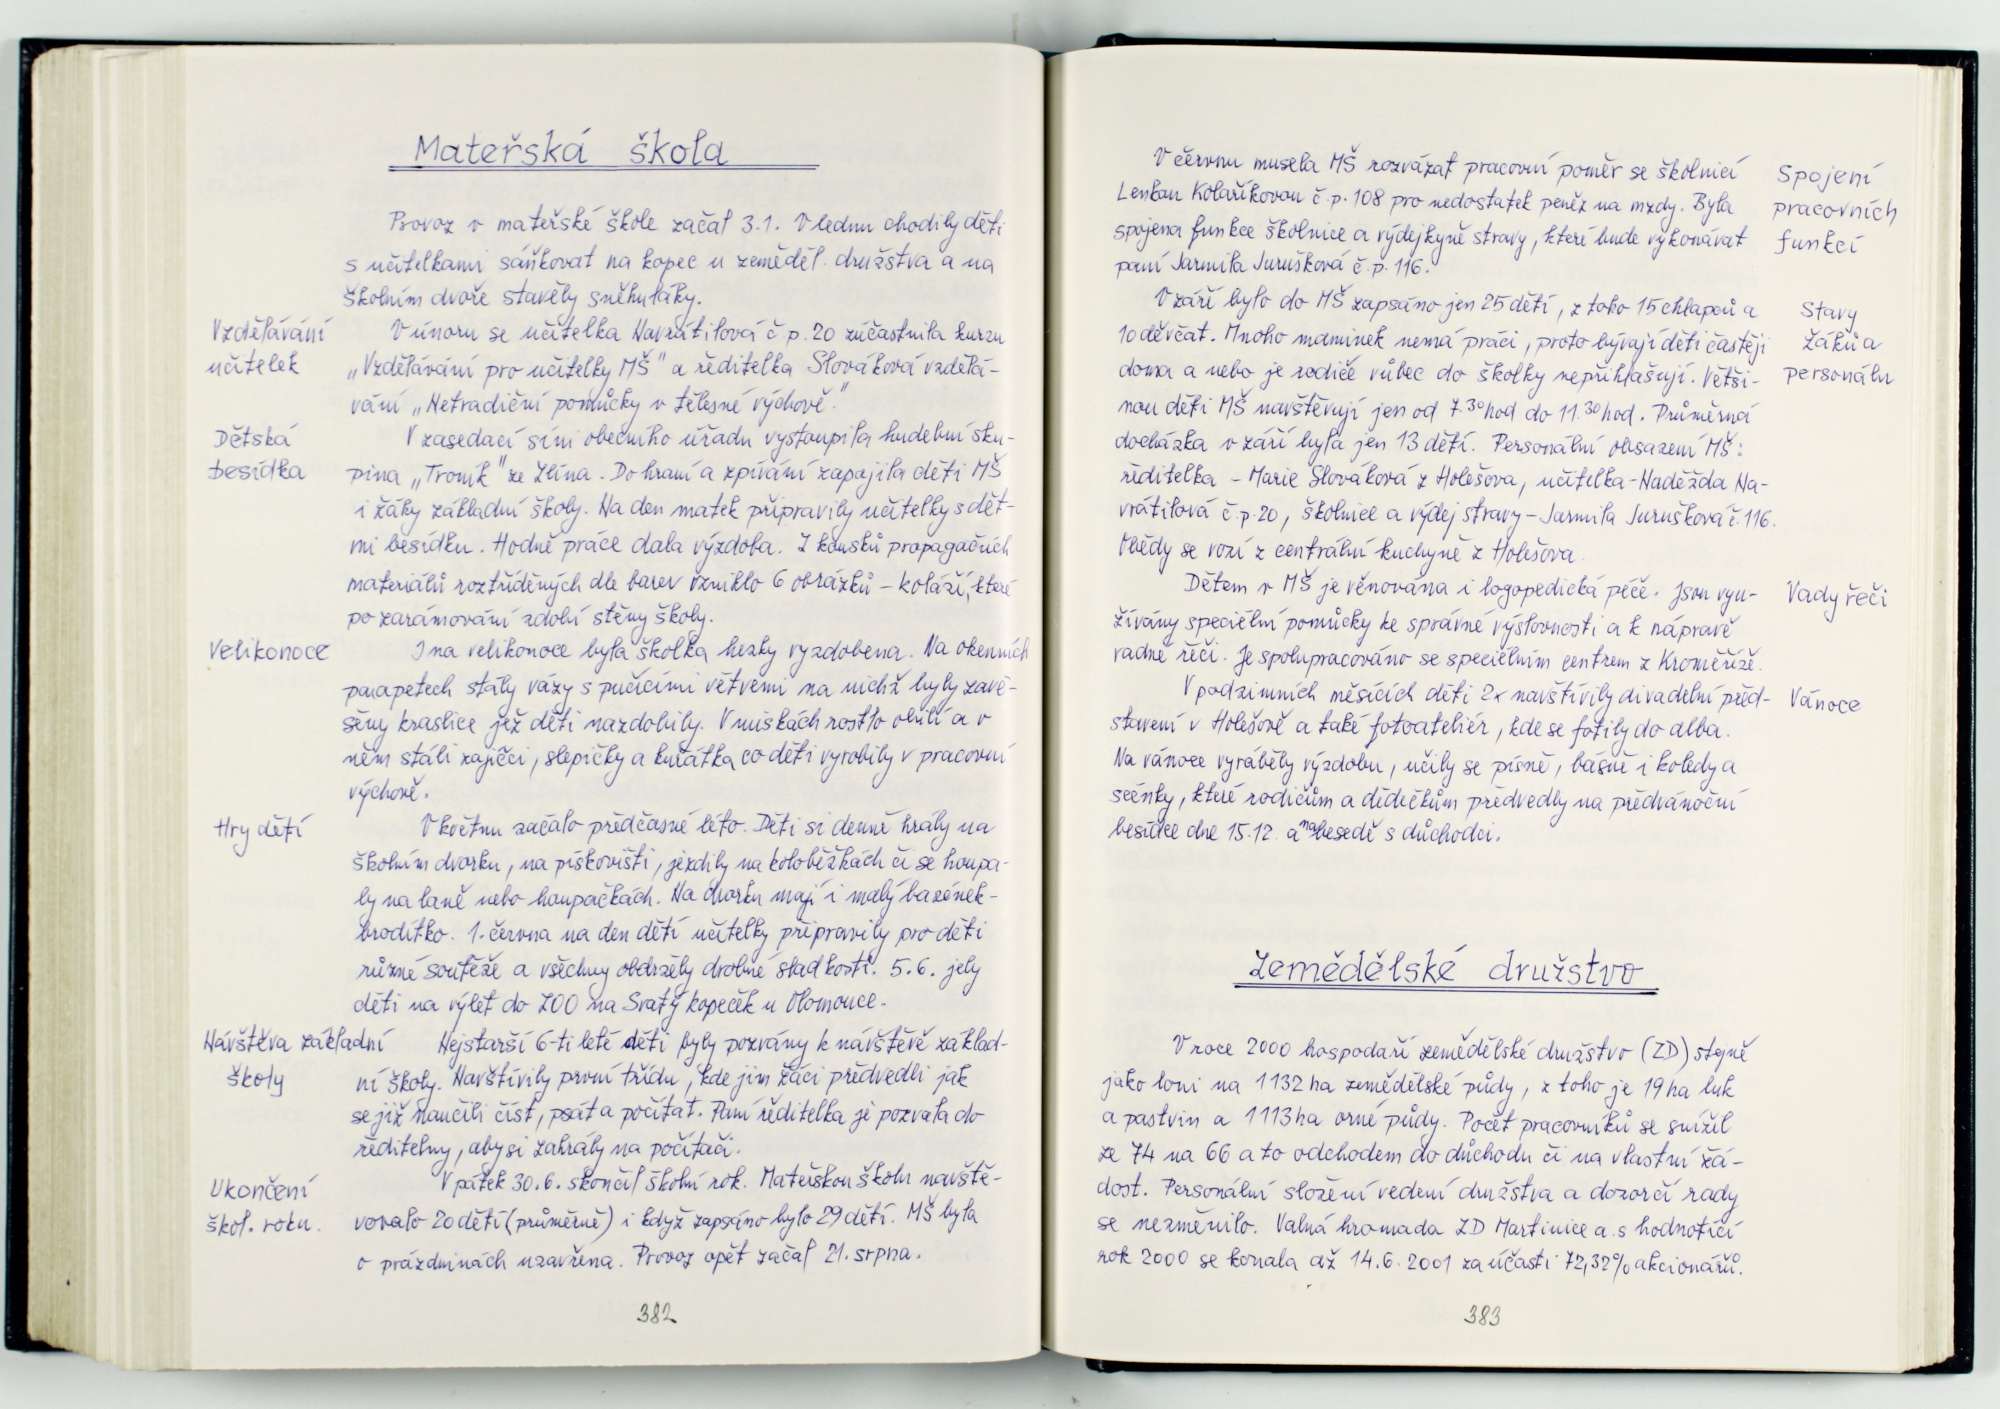 Mateřská škola
Provoz v mateřské škole začal 3.1. V lednu chodily děti
s učitelkami sáňkovat na kopec u zeměděl. družstva a na
školním dvoře stavěly sněhuláky.
Vzdělávání
učitelek
V únoru se učitelka Navrátilová č p. 20 zúčastnila kurzu
„Vzdělávání pro učitelky MŠ" a ředitelka Slováková vzdělá-
vání „Netradiční pomůcky v tělesné výchově."
Dětská
besídka
V zasedací síni obecního úřadu vystoupila hudební sku-
pina „Tromík" ze Zlína. Do hraní a zpívání zapojila děti MŠ
i žáky základní školy. Na den matek připravily učitelky s dět-
mi besídku. Hodně práce dala výzdoba. Z kousků propagačních
materiálů roztříděných dle barev vzniklo 6 obrázků – koláží, které
po zarámování zdobí stěny školy.
Velikonoce
I na velikonoce byla školka hezky vyzdobena. Na okenních
parapetech stály vázy s pučícími větvemi na nichž byly zavě-
šeny kraslice jež děti nazdobily. V miskách rostlo obilí a v
něm stáli zajíčci, slepičky a kuřátka co děti vyrobily v pracovní
výchově.
Hry dětí
V květnu začalo předčasné léto. Děti si denně hrály na
školním dvorku, na pískovišti, jezdily na koloběžkách či se houpa-
ly na laně nebo houpačkách. Na dvorku mají i malý bazének-
brodítko. 1. června na den dětí učitelky připravily pro děti
různé soutěže a všechny obdržely drobné sladkosti. 5.6. jely
děti na výlet do ZOO na Svatý kopeček u Olomouce.
Návštěva základní
školy
Nejstarší 6-ti leté děti byly pozvány k návštěvě základ-
ní školy. Navštívily první třídu, kde jim žáci předvedli jak
se již naučili číst, psát a počítat. Paní ředitelka je pozvala do
ředitelny, aby si zahrály na počítači.
Ukončení
škol. roku.
V pátek 30.6. skončil školní rok. Mateřskou školu navště-
vovalo 20 dětí (průměrně) i když zapsáno bylo 29 dětí. MŠ byla
o prázdninách uzavřena. Provoz opět začal 21. srpna.
382
V červnu musela MŠ rozvázat pracovní poměr se školnicí
Lenkou Kolaříkovou č.p. 108 pro nedostatek peněz na mzdy. Byla
spojena funkce školnice a výdejkyně stravy, které bude vykonávat
paní Jarmila Jurušková č.p. 116.
Spojení
pracovních
funkcí
V září bylo do MŠ zapsáno jen 25 dětí, z toho 15 chlapců a
10 děvčat. Mnoho maminek nemá práci, proto bývají děti častěji
doma a nebo je rodiče vůbec do školky nepřihlašují. Větši-
nou děti MŠ navštěvují jen od 7.30 hod do 11.30 hod. Průměrná
docházka v září byla jen 13 dětí. Personální obsazení MŠ:
ředitelka – Marie Slováková z Holešova, učitelka – Naděžda Na-
vrátilová č.p. 20, školnice a výdej stravy – Jarmila Jurušková č. 116.
Obědy se vozí z centrální kuchyně z Holešova.
Stavy
žáků a
personálu
Dětem v MŠ je věnována i logopedická péče. Jsou vyu-
žívány speciélní pomůcky ke správné výslovnosti a k nápravě
vadné řeči. Je spolupracováno se speciélním centrem z Kroměříže.
Vady řeči
V podzimních měsících děti 2x navštívily divadelní před-
stavení v Holešově a také fotoateliér, kde se fotily do alba.
Na vánoce vyráběly výzdobu, učily se písně, básně i koledy a
scénky, které rodičům a dědečkům předvedly na předvánoční
besídce dne 15.12. a na besedě s důchodci.
Vánoce
Zemědělské družstvo
V roce 2000 hospodaří zemědělské družstvo (ZD) stejně
jako loni na 1132 ha zemědělské půdy, z toho je 19 ha luk
a pastvin a 1113 ha orné půdy. Počet pracovníků se snížil
ze 74 na 66 a to odchodem do důchodu či na vlastní žá-
dost. Personální složení vedení družstva a dozorčí rady
se nezměnilo. Valná hromada ZD Martinice a.s hodnotící
rok 2000 se konala až 14.6.2001 za účasti 72,32% akcionářů.
383